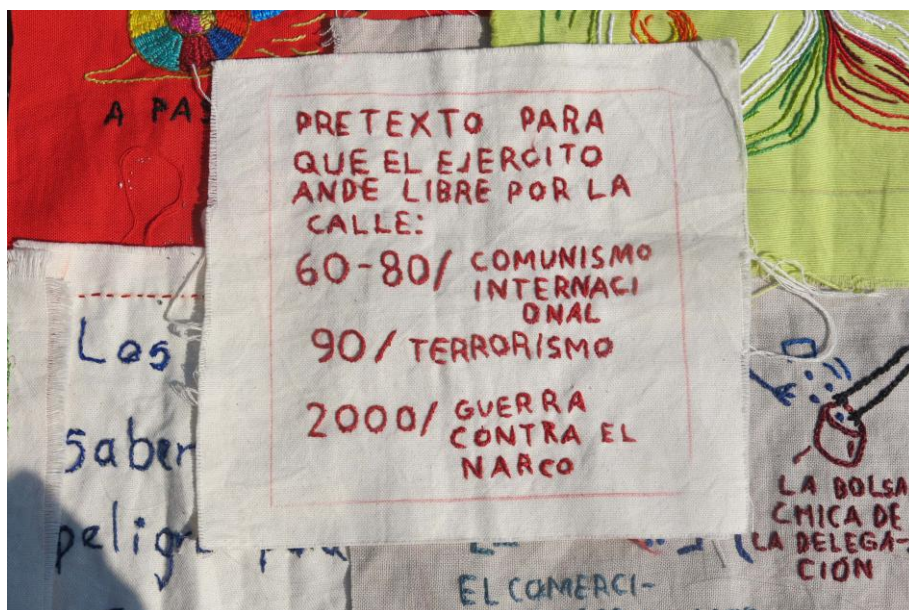 A PAS
PRETEXTO PARA
QUE EL EJERCITO
ANDE LIBRE POR LA
CALLE:
60-80/ COMUNISMO
INTERNACI
ONAL
90/ TERRORISMO
2000/ GUERRA
CONTRA EL
NARCO
Los
Saber
peligr
LA BOLSA
CHICA DE
LA DELEGA-
CIÓN
EL COMERCI-